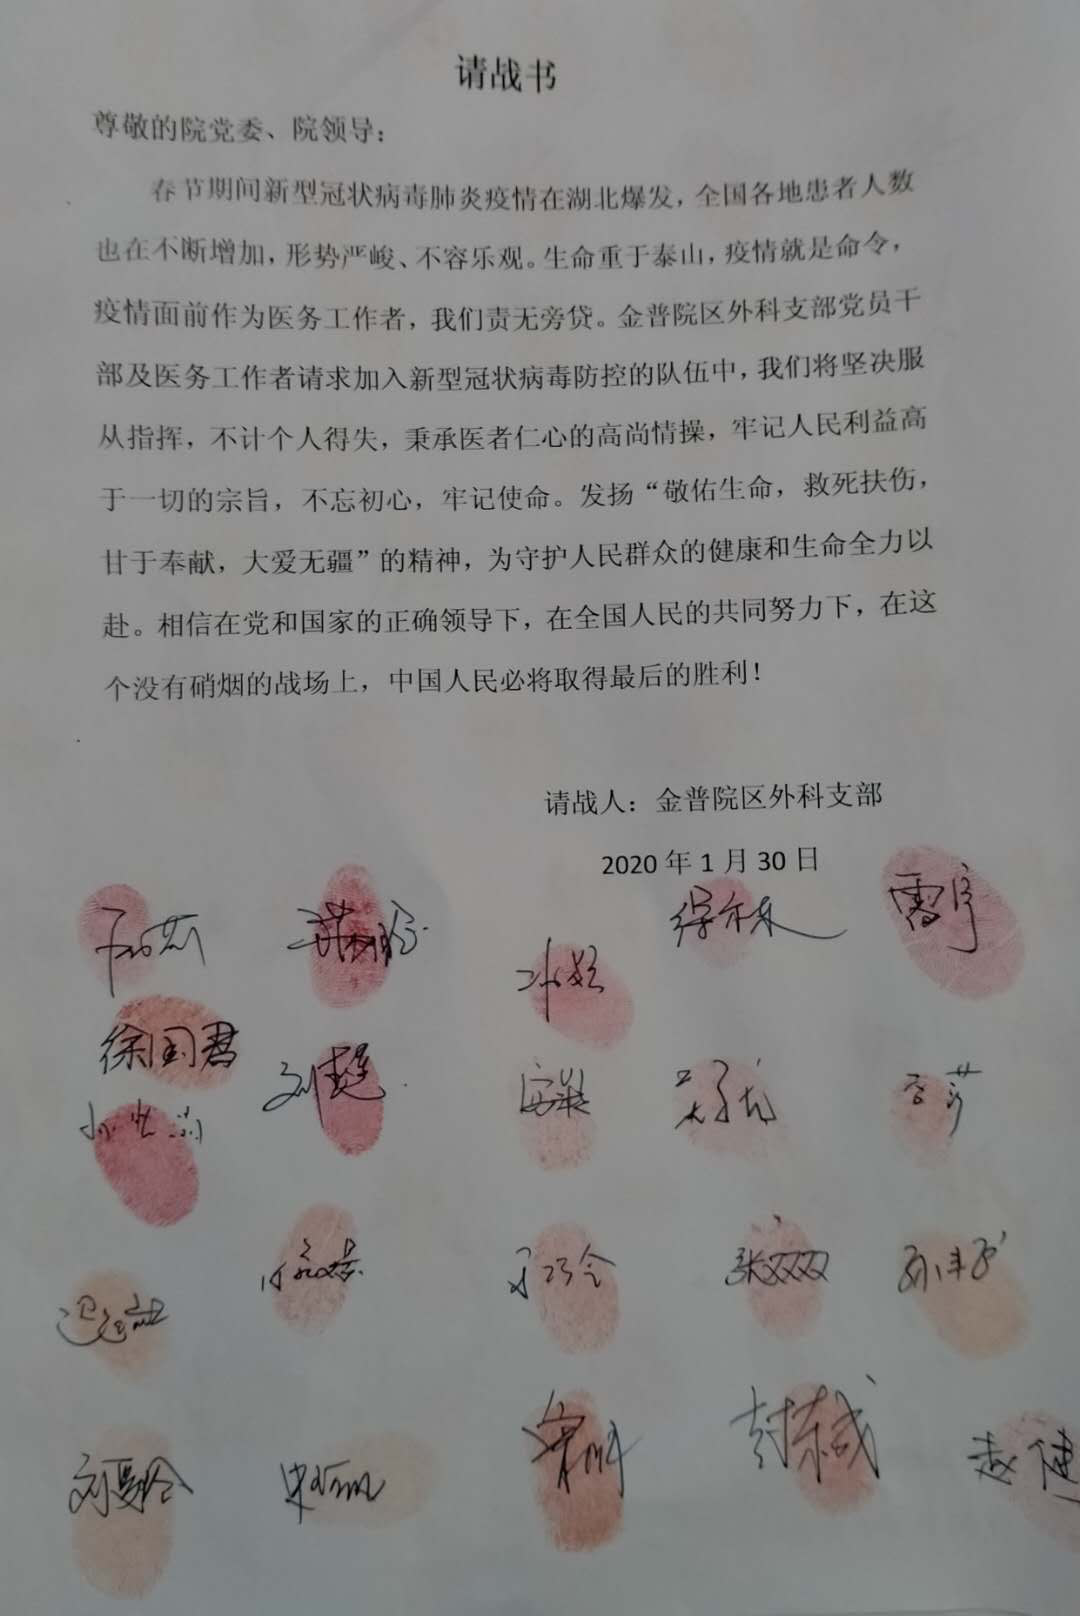 请战书
尊敬的院党委、院领导：
春节期间新型冠状病毒肺炎疫情在湖北爆发，全国各地患者人数
也在不断增加，形势严峻、不容乐观。生命重于泰山，疫情就是命令，
疫情面前作为医务工作者，我们责无旁贷。金普院区外科支部党员干
部及医务工作者请求加入新型冠状病毒防控的队伍中，我们将坚决服
从指挥，不计个人得失，秉承医者仁心的高尚情操，牢记人民利益高
于一切的宗旨，不忘初心，牢记使命。发扬“敬佑生命，救死扶伤，
甘于奉献，大爱无疆”的精神，为守护人民群众的健康和生命全力以
赴。相信在党和国家的正确领导下，在全国人民的共同努力下，在这
个没有硝烟的战场上，中国人民必将取得最后的胜利！
请战人：金普院区外科支部
2020 年 1 月 30 日
雷宇
徐国君
李莎
张双双
赵健